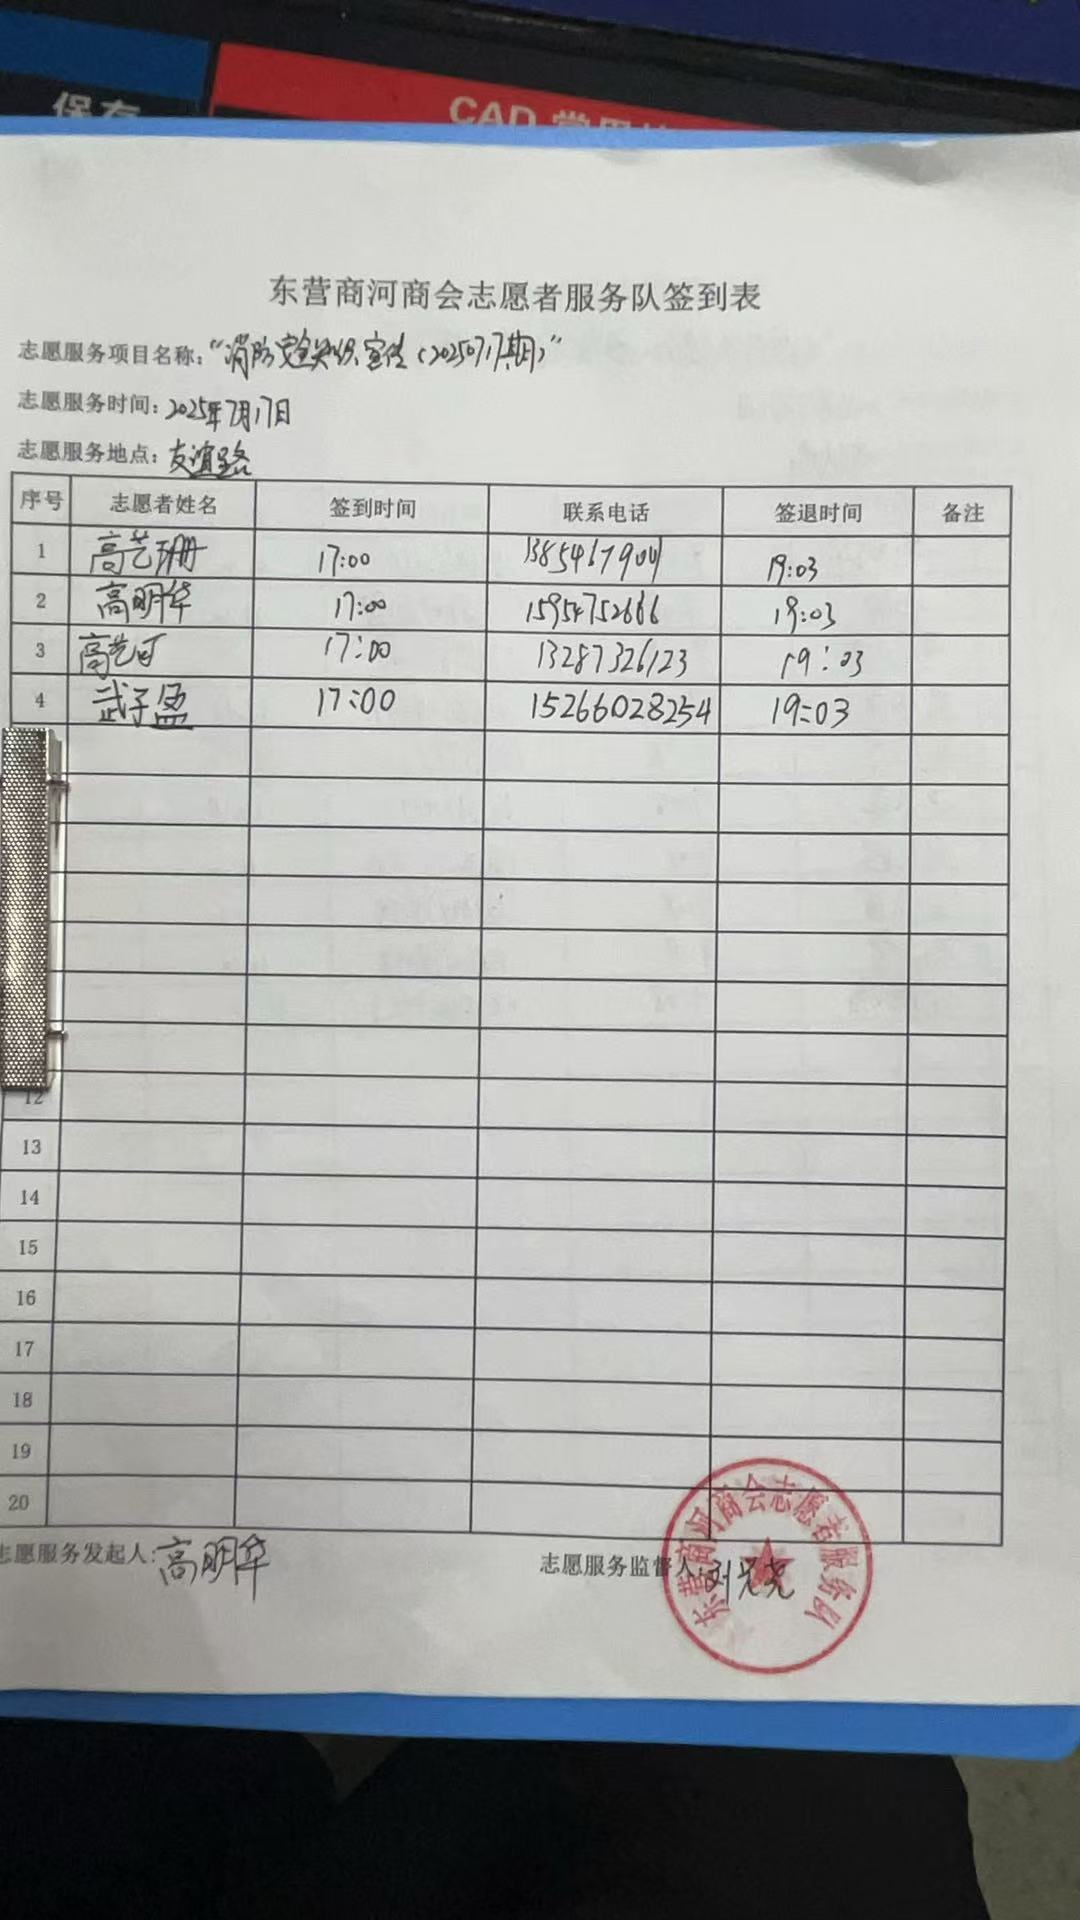 保存
CAD 常用
东营商河商会志愿者服务队签到表
志愿服务项目名称:"消防安全知识宣传(20250717期)"
志愿服务时间:2025年7月17日
志愿服务地点:友谊路
序号 志愿者姓名 签到时间 联系电话 签退时间 备注
1 高艺珊 17:00 19:03
2 高明华 17:00 15954752666 19:03
3 高艺可 17:00 13287326123 19:03
4 武子盈 17:00 15266028254 19:03
12
13
14
15
16
17
18
19
20
志愿服务发起人:高明华 志愿服务监督人:刘
东营商河商会志愿者服务队